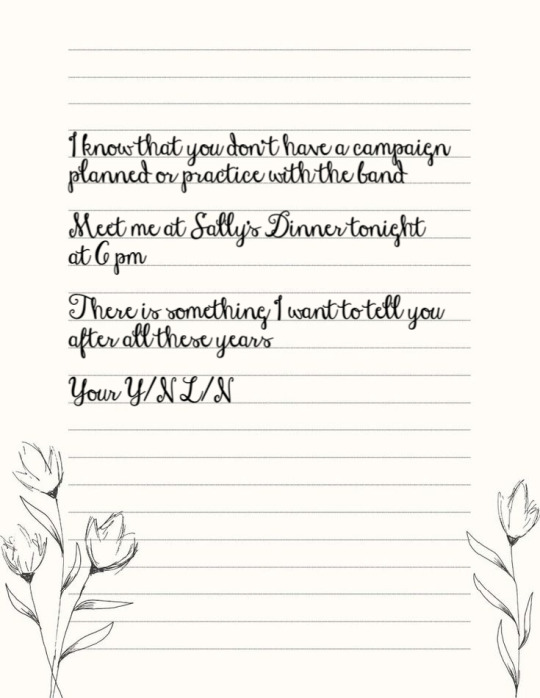 I know that you don't have a campaign
planned or practice with the band
Meet me at Sally's Dinner tonight
at 6 pm
There is something I want to tell you
after all these years
Your Y/N L/N